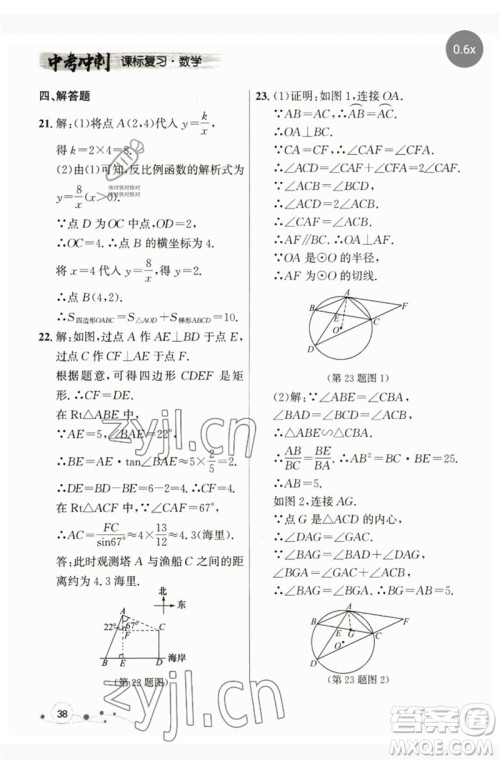 0.6x
中考冲刺 课标复习·数学
四、解答题
21. 解：(1)将点 A(2,4)代入 y=k/x，
得 k=2×4=8.
(2)由(1)可知，反比例函数的解析式为
y=8/x(x>0).
∵点 D 为 OC 中点，AD=2，
∴OC=4. ∴点 B 的横坐标为 4.
将 x=4 代入 y=8/x，得 y=2.
∴点 B(4,2).
∴S四边形OABC=S△AOD+S梯形ABCD=10.
22. 解：如图，过点 A 作 AE⊥BD 于点 E，
过点 C 作 CF⊥AE 于点 F.
根据题意，可得四边形 CDEF 是矩
形. ∴CF=DE.
在 Rt△ABE 中，
∵AE=5，∠BAE=22°，
∴BE=AE·tan∠BAE≈5×2/5=2.
∴DE=BD-BE=6-2=4. ∴CF=4.
在 Rt△ACF 中，∠CAF=67°，
∴AC=FC/sin67°≈4×13/12≈4.3(海里).
答：此时观测塔 A 与渔船 C 之间的距离
约为 4.3 海里.
北
东
A
22°
67°
F
C
B E D 海岸
(第 22 题图)
38
23. (1)证明：如图 1，连接 OA.
∵AB=AC，∴AB=AC.
∴OA⊥BC. ∴∠ACB=∠ABC.
∵∠ACD+∠CAF=∠ACB，
∴∠ACD=∠CAF+∠CFA.
∵∠ACB=∠BCD，
∴∠ACD=2∠ACB.
∴∠CAF=∠ACB.
∴AF∥BC. ∴OA⊥AF.
∵OA 为⊙O 的半径，
∴AF 是⊙O 的切线.
A
B
F
E
C
O
D
(第 23 题图 1)
(2)解：∵∠ABE=∠CBA，
∠BAD=∠BCD=∠ACB，
∴△ABE∽△CBA.
∴AB/BC=BE/AB. ∴AB²=BC·BE=25.
∴AB=5.
如图 2，连接 AG.
∵点 G 为△ACD 的内心，
∴∠DAG=∠GAC.
∵∠BAD=∠BDC=∠BCD，
∴∠BAG=∠BGA. ∴BG=AB=5.
A
B
F
C
O
D
(第 23 题图 2)
zyjl.cn
zyjl.cn
作业精灵